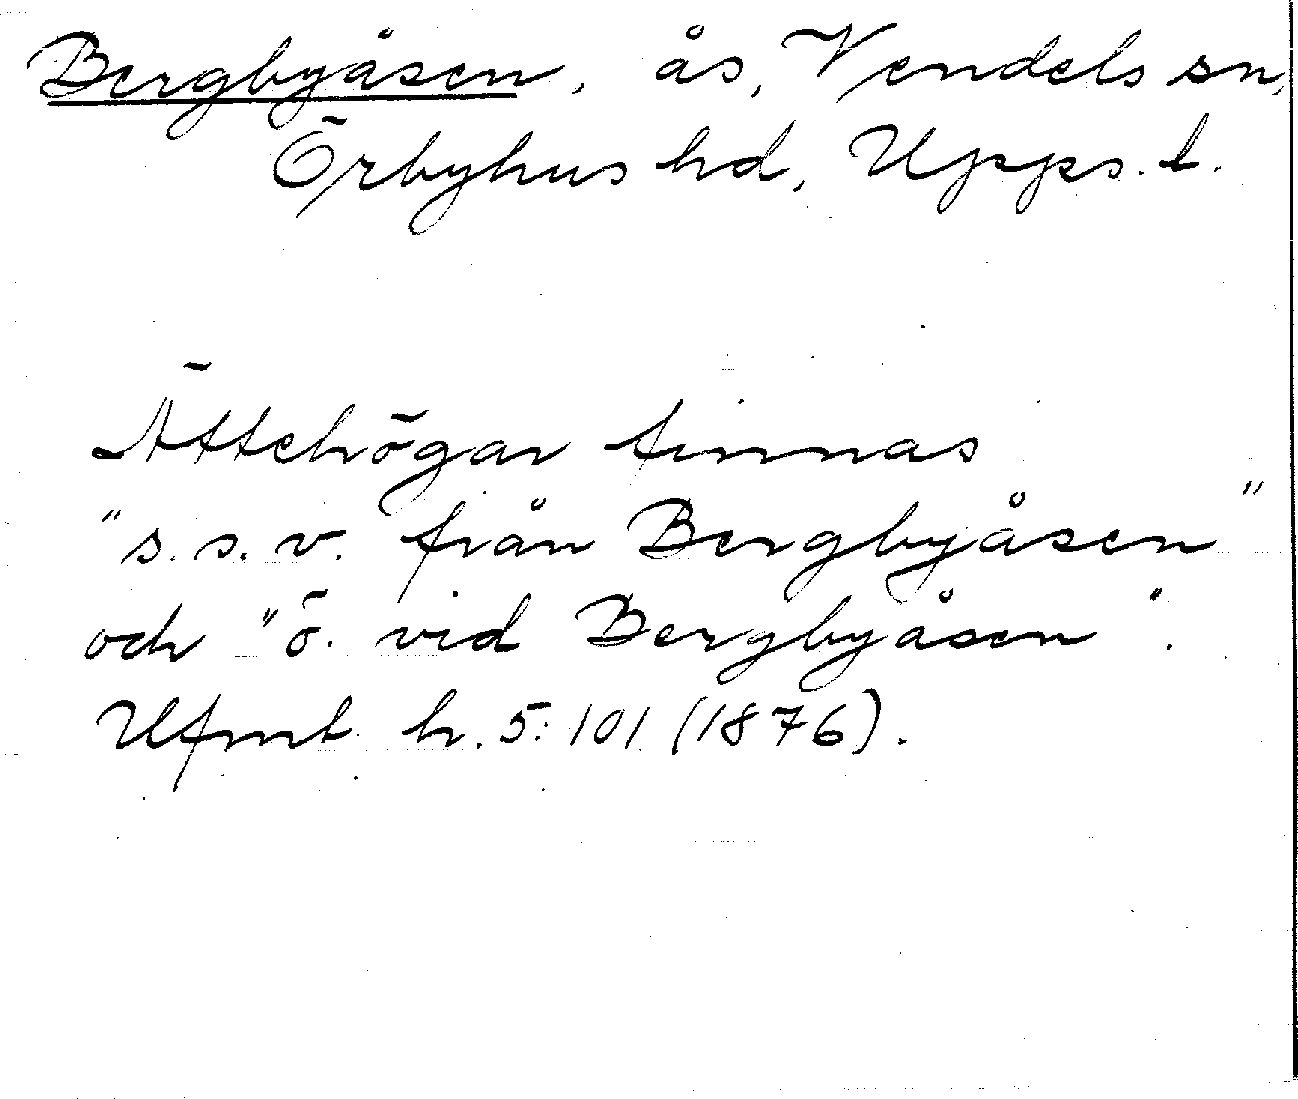 Bergbyåsen, ås, Vendels sn,
Örbyhus hd, Upps. l.
Ättehögar finnas
"s.s.v. från Bergbyåsen"
och "ö. vid Bergbyåsen".
Ufmt h. 5: 101 (1876).